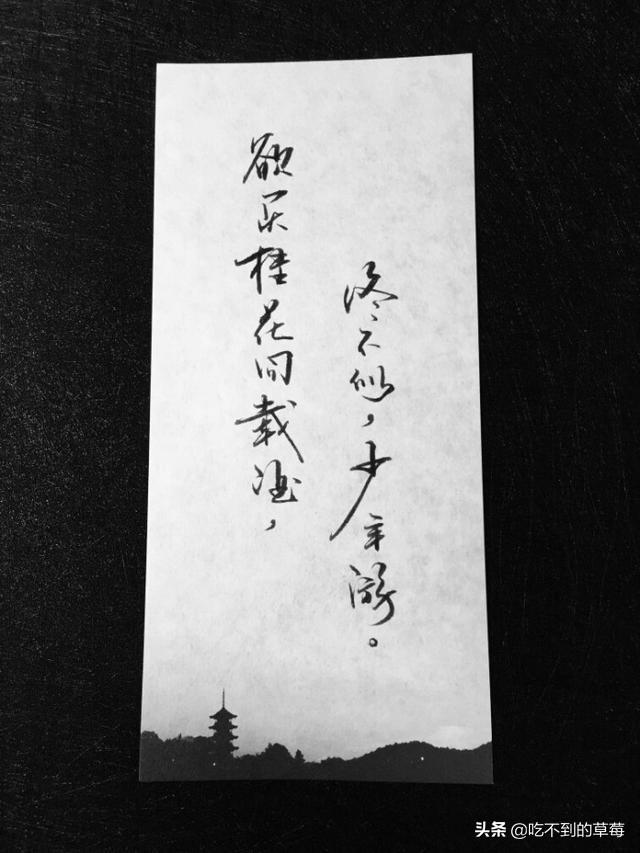 欲买桂花同载酒，
终不似，少年游。
头条 @吃不到的草莓